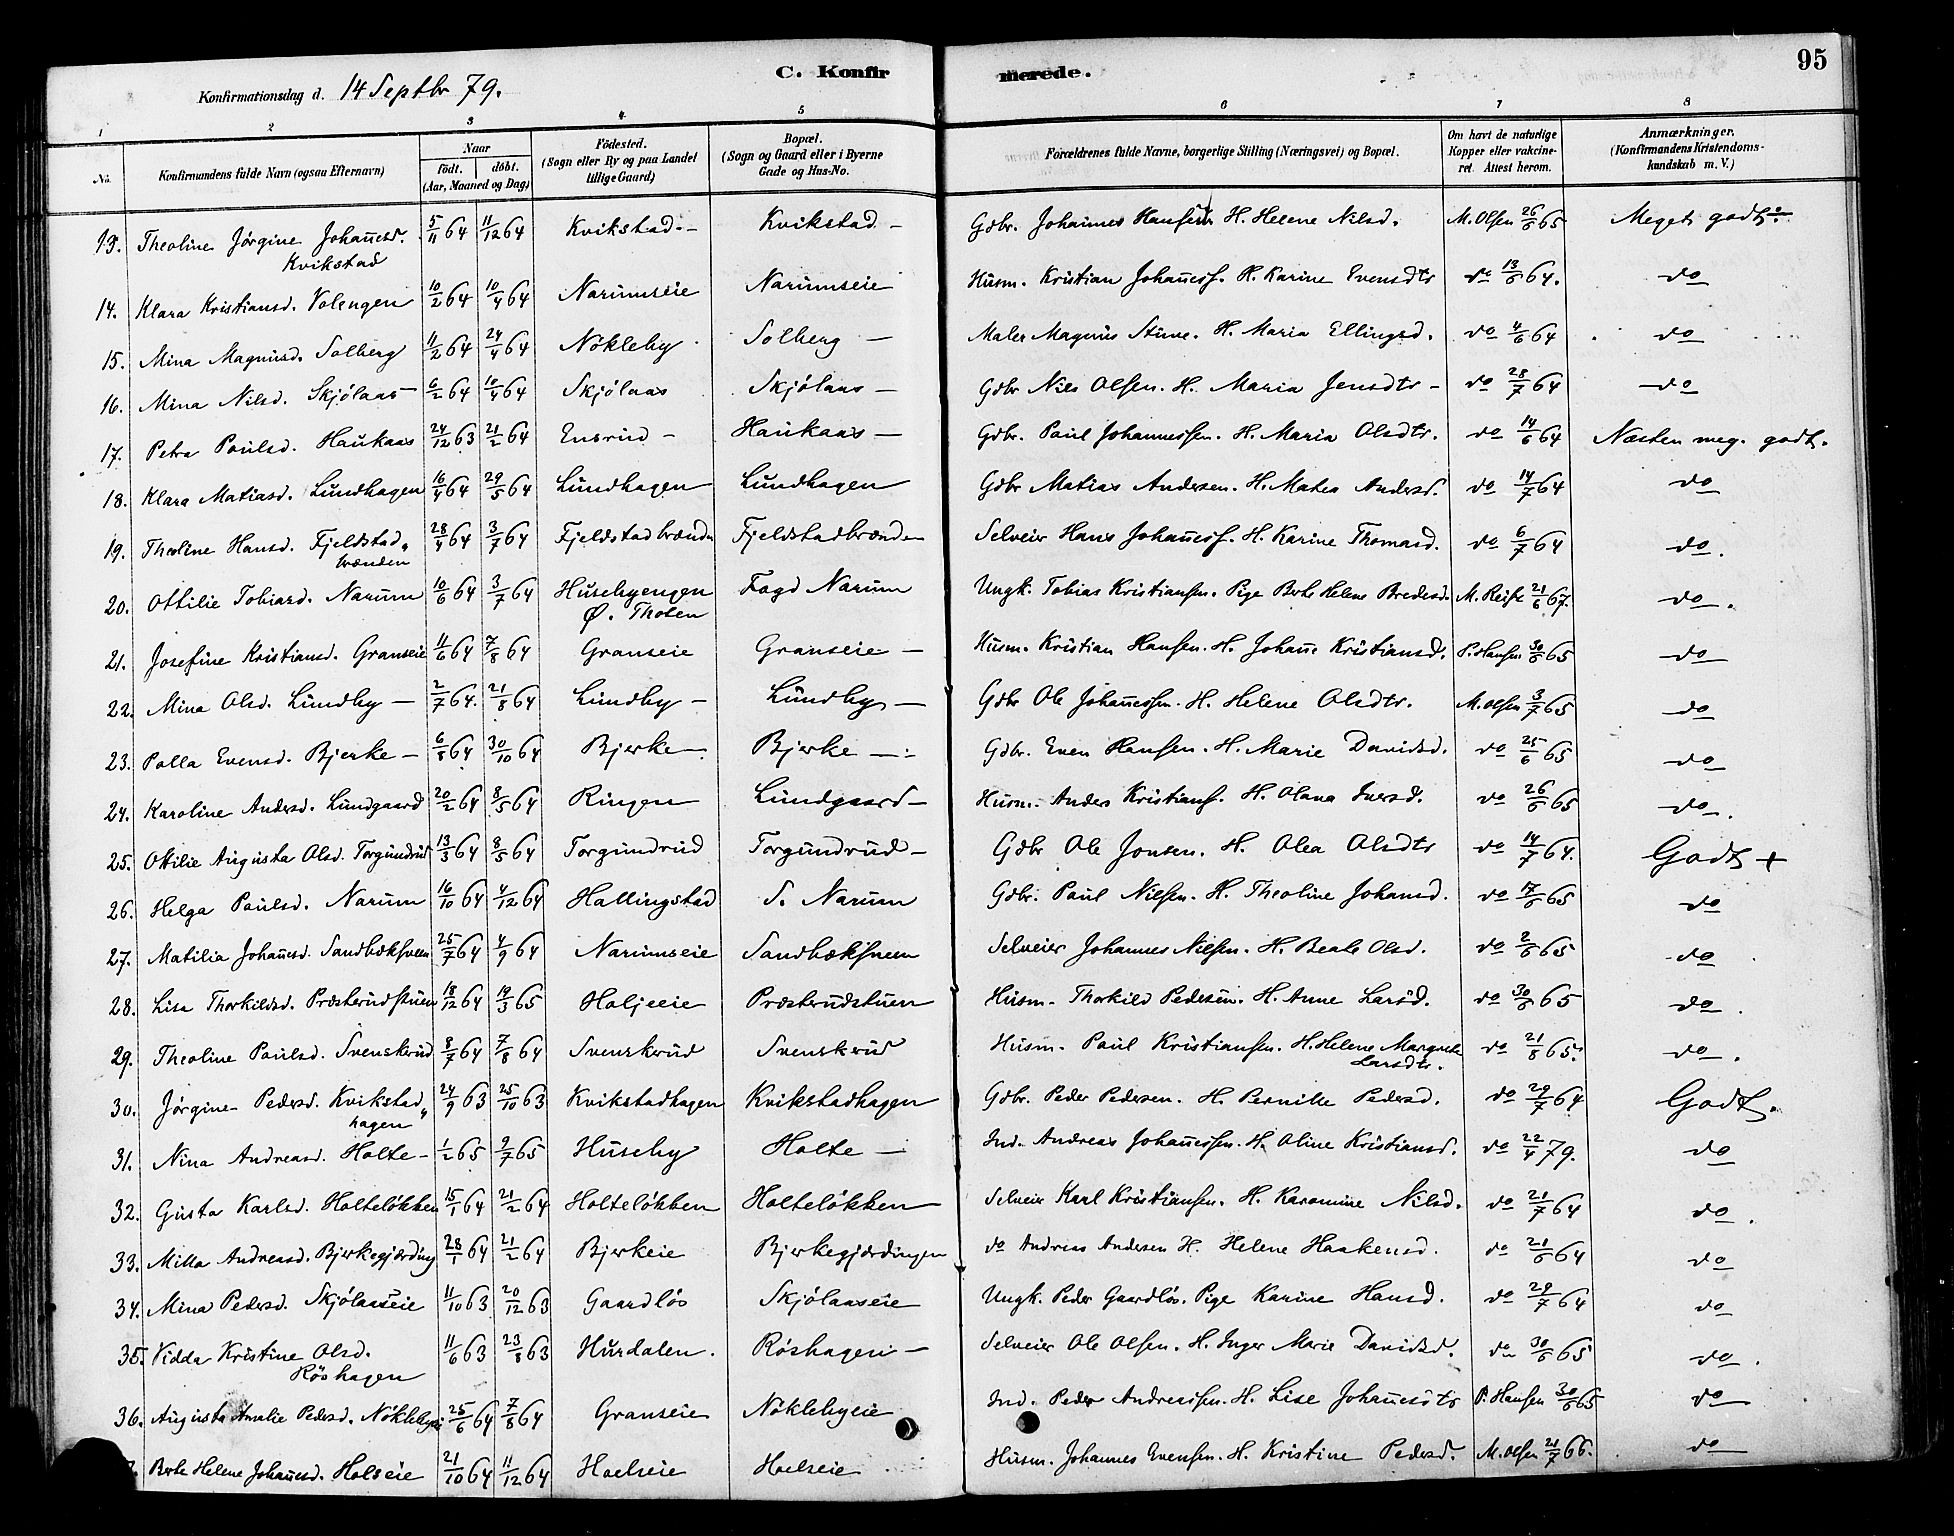 95
C. Konfirmerede.
Konfirmationsdag d. 14 Septbr 79.
1 2 3 4 5 6 7 8
No. Konfirmandens fulde Navn (ogsaa Efternavn) Naar födt. döbt. (Aar, Maaned og Dag) Födested. (Sogn eller By og paa Landet tillige Gaard) Bopæl. (Sogn og Gaard eller i Byerne Gade og Hus-No. Forældrenes fulde Navne, borgerlige Stilling (Næringsvei) og Bopæl. Om havt de naturlige Kopper eller vakcineret. Attest herom. Anmærkninger. (Konfirmandens Kristendomskundskab m. V.)
13. Theoline Jörgine Johan̄esd. Kvikstad 5/11 64 11/12 64 Kvikstad - Kvikstad - Gdbr. Johannes Hansen H. Helene Nilsd. M. Olsen 26/6 65 Meget godt
14. Klara Kristiansd. Volengen 10/2 64 10/4 64 Narumseie Narumseie Husm. Kristian Johan̄ess. H. Karine Evensdtr do 13/6 64. do
15. Mina Magnusd. Solberg 11/2 64 24/4 64 Nökleby Solberg - Maler Magnus Stuve. H. Maria Ellingsd. do 4/6 64 do
16. Mina Nilsd. Skjölaas - 6/2 64 10/4 64 Skjölaas Skjölaas - Gdbr Nils Olsen. H. Maria Jensdtr - do 28/7 64 do
17. Petra Paulsd. Haukaas 24/12 63 21/2 64 Ensrud - Haukaas - Gdbr. Paul Johannessen. H. Maria Olsdtr. do 14/6 64 Næsten meg. godt.
18. Klara Matiasd. Lundhagen 16/4 64 29/5 64 Lundhagen Lundhagen Gdbr Matias Andersen. H. Matea Andersd. do 14/7 64 do
19. Theoline Hansd. Fjeldstadbrænden 28/4 64 3/7 64 Fjeldstadbrænd. Fjeldstadbrænd. Selveier Hans Johan̄ess. H. Karine Thomasd. do 6/7 64 do.
20. Ottilie Tobiasd. Narum 10/6 64 3/7 64 Husebyengen Ø. Thoten Fogd Narum Ungk. Tobias Kristiansen. Pige Berte Helene Bredesd. M. 21/6 67. do.
21. Josefine Kristiansd. Granseie 11/6 64 7/8 64 Granseie Granseie - Husm. Kristian Hansen. H. Johan̄e Kristiansd. P. Hansen 30/6 65 do
22. Mina Olsd. Lundby - 2/7 64. 21/8 64 Lundby - Lundby - Gdbr Ole Johan̄essen. H. Helene Olsdtr. M. Olsen 3/7 65 do
23. Palla Evensd. Bjerke - 6/8 64 30/10 64 Bjerke Bjerke - Gdbr. Even Hansen. H. Marie Davidsd. do 25/6 65 do
24. Karoline Andersd. Lundgaard 20/2 64 8/5 64 Ringen Lundgaard - Husm. Anders Kristians. H. Olava Iversd. do 26/6 65 do.
25. Ottilie Augusta Olsd. Torgundrud 13/3 64 8/5 64 Torgundrud Torgundrud - Gdbr Ole Jonsen. H. Olea Olsdtr do 14/7 64. Godt +
26. Helga Paulsd. Narum 16/10 64 4/12 64 Hallingstad S. Narum Gdbr. Paul Nilsen. H. Theoline Johansd. do 17/6 65 do
27. Matilia Johan̄esd. Sandbæksveen 25/7 64 4/9 64 Narumseie Sandbæksveen Selveier Johannes Nilsen. H. Beate Olsd. do 2/6 65 do
28. Lisa Thorkildsd. Præsterudstuen 18/12 64 19/3 65 Holjeeie Præsterudstuen Husm. Thorkild Pedersen. H. Anne Larsd. do 30/6 65 do.
29. Theoline Paulsd. Svenskerud 8/7 64 7/8 64 Svenskrud Svenskrud Husm. Paul Kristiansen. H. Helene Margrete Larsdtr. do 21/8 65. do.
30. Jörgine Pedersd. Kvikstadhagen 24/9 63 25/10 63 Kvikstadhagen Kvikstadhagen Gdbr. Peder Pedersen. H. Pernille Pedersd. do 29/7 64 Godt.
31. Nina Andreasd. Holte - 1/2 65 9/7 65 Huseby Holte - Ind. Andreas Johan̄essen. H. Oline Kristiansd. do 22/4 79. do
32. Gusta Karlsd. Holtelökken 15/1 64 21/2 64 Holtelökken Holtelökken Selveier Karl Kristiansen. H. Karomine Nilsd. do 21/7 64 do.
33. Milla Andreasd. Bjerkegjærding 28/1 64 21/2 64 Bjerkeie Bjerkegjærdingen do Andreas Andersen H. Helene Haakensd. do 21/6 64 do
34. Mina Pedersd. Skjölaaseie 11/10 63 20/12 63 Gaardlös Skjölaaseie Ungk. Peder Gaardlös. Pige Karine Hansd. do 29/7 64 do
35. Vidda Kristine Olsd. Röshagen 11/6 63 23/8 63 Hurdalen. Röshagen - Selveier Ole Olsen. H. Inger Marie Davidsd. do 30/6 65 do.
36. Augusta Amalie Pedersd. Nöklebyei 25/6 64 7/8 64 Granseie Nöklebyeie Ind. Peder Andreassen. H. Lise Johan̄esdtr P. Hansen 30/6 65 do
Berte Helene Johan̄esd. Holseie 21/10 64 11/12 64 Hoelseie Hoelseie Husm. Johannes Evensen. H. Kristine Pedersd. M. Olsen 21/7 66. do